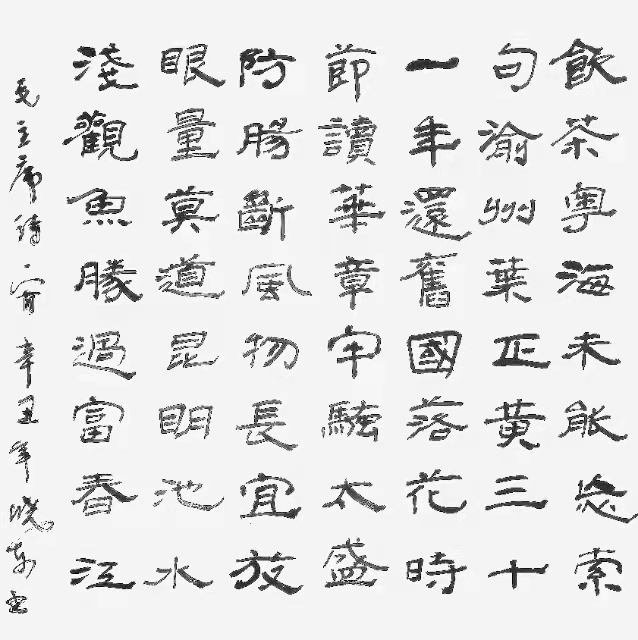 飲茶粵海未能忘索
句渝州葉正黃三十
一年還舊國落花時
節讀華章牢騷太盛
防腸斷風物長宜放
眼量莫道昆明池水
淺觀魚勝過富春江
毛主席詩一首辛丑年曉东书